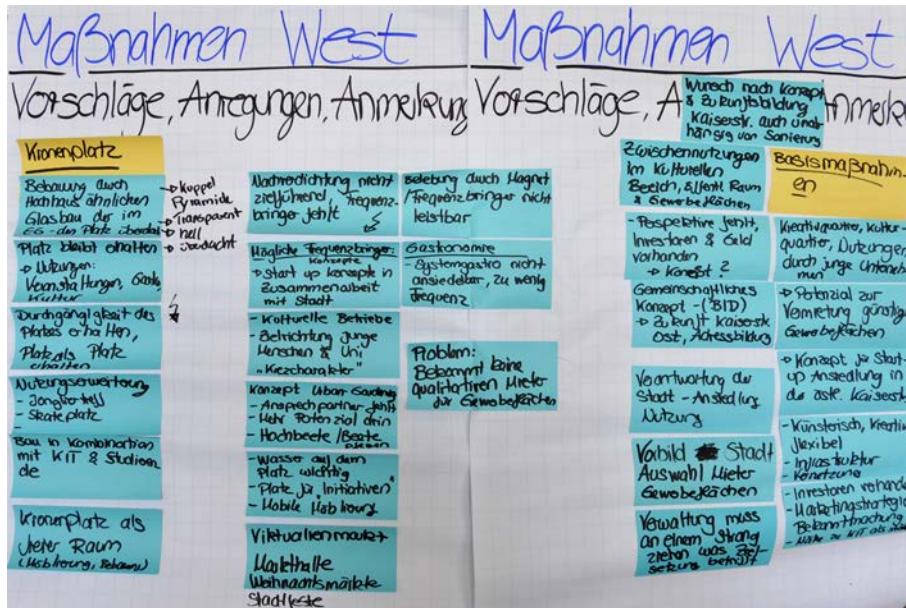 Maßnahmen West
Vorschläge, Anregungen, Anmerkung
Kronenplatz
Bebauung durch
Hochhaus ähnlichen
Glasbau der im
EG - den Platz überdacht
→ Kuppel
Pyramide
→ Transparent
→ hell
→ überdacht
Platz bleibt erhalten
→ Nutzungen:
Veranstaltungen, Gastro,
Kultur
Durchgängigkeit des
Platzes erhalten,
Platz als Platz
erhalten
Nutzungserweiterung
- Jongliertreff
- Skateplatz
-
Bau in Kombination
mit KIT & Studieren
de
Kronenplatz als
freier Raum
(Möblierung, Bebauung)
Nachverdichtung nicht
zielführend, Frequenz-
bringer fehlt
Mögliche Frequenzbringer:
Konzepte
→ Start up Konzepte in
Zusammenarbeit
mit Stadt
- Kulturelle Betriebe
- Betrachtung junge
Menschen & Uni
"Kiezcharakter"
Konzept Urban Gardning
- Ansprechpartner fehlt
- Mehr Potenzial drin
- Hochbeete / Beete
- Wasser auf dem
Platz wichtig
- Platz für "Initiativen"
- Mobile Möblierung
Viktualienmarkt
Markthalle
Weihnachtsmärkte
Stadtfeste
Belebung durch Magnet
/Frequenzbringer nicht
leistbar
Gastronomie
- Systemgastro nicht
ansiedelbar, zu wenig
Frequenz
Problem:
Bekommt keine
qualitativen Mieter
für Gewerbeflächen
Maßnahmen West
Vorschläge, A nmerk
Wunsch nach Konzept
& Zukunftsbildung
Kaiserstr. auch unab-
hängig von Sanierung
Zwischennutzungen
im Kulturellen
Bereich, öffentl. Raum
& Gewerbeflächen
- Perspektive fehlt,
Investoren & Geld
vorhanden
→ Konzept?
Gemeinschaftliches
Konzept - (BID)
→ Zukunft Kaiserstr.
Ost, Adressbildung
Verantwortung der
Stadt - Ansiedlung
Nutzung
Vorbild Stadt
Auswahl Mieter
Gewerbeflächen
Verwaltung muss
an einem Strang
ziehen was Ziel-
setzung betrifft
Basismaßnahm-
en
Kreativquartier, Kultur-
quartier, Nutzungen
durch junge Unterneh
men
→ Potenzial zur
Vermietung günstige
Gewerbeflächen
→ Konzept für Start-
up Ansiedlung in
der östl. Kaiserstr
- Künstlerisch, Kreativ
flexibel
- Infrastruktur
- Vernetzung
- Investoren vorhanden
- Marketingstrategie
Bekanntmachung
- Nähe zu KIT als